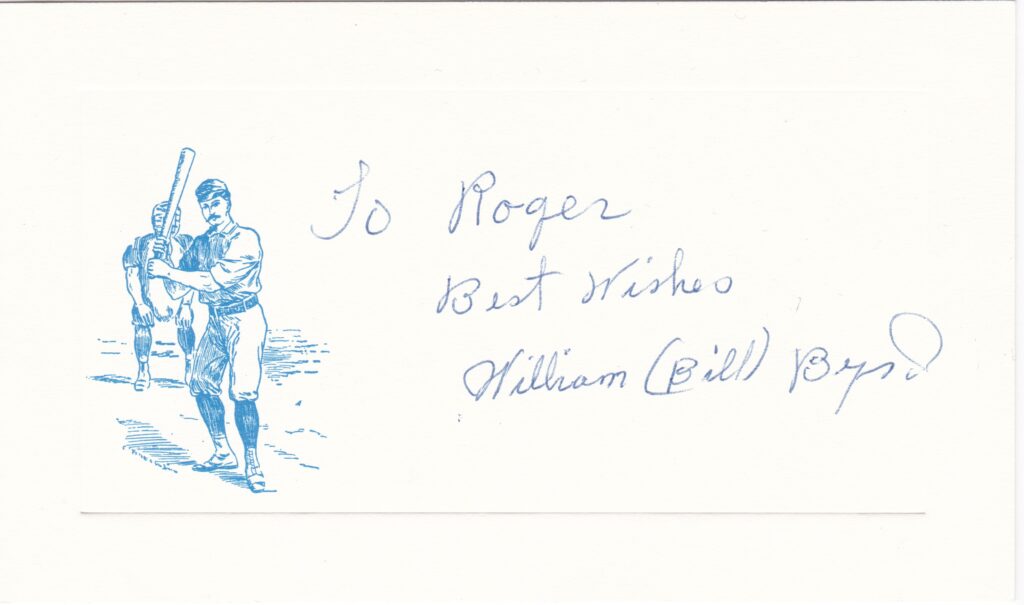 To Roger
Best Wishes
William (Bill) Byrd